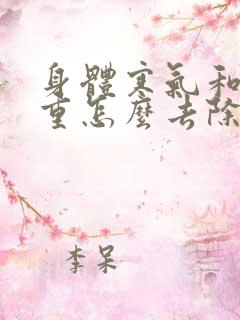 身體寒氣和
重怎麼去除
李呆